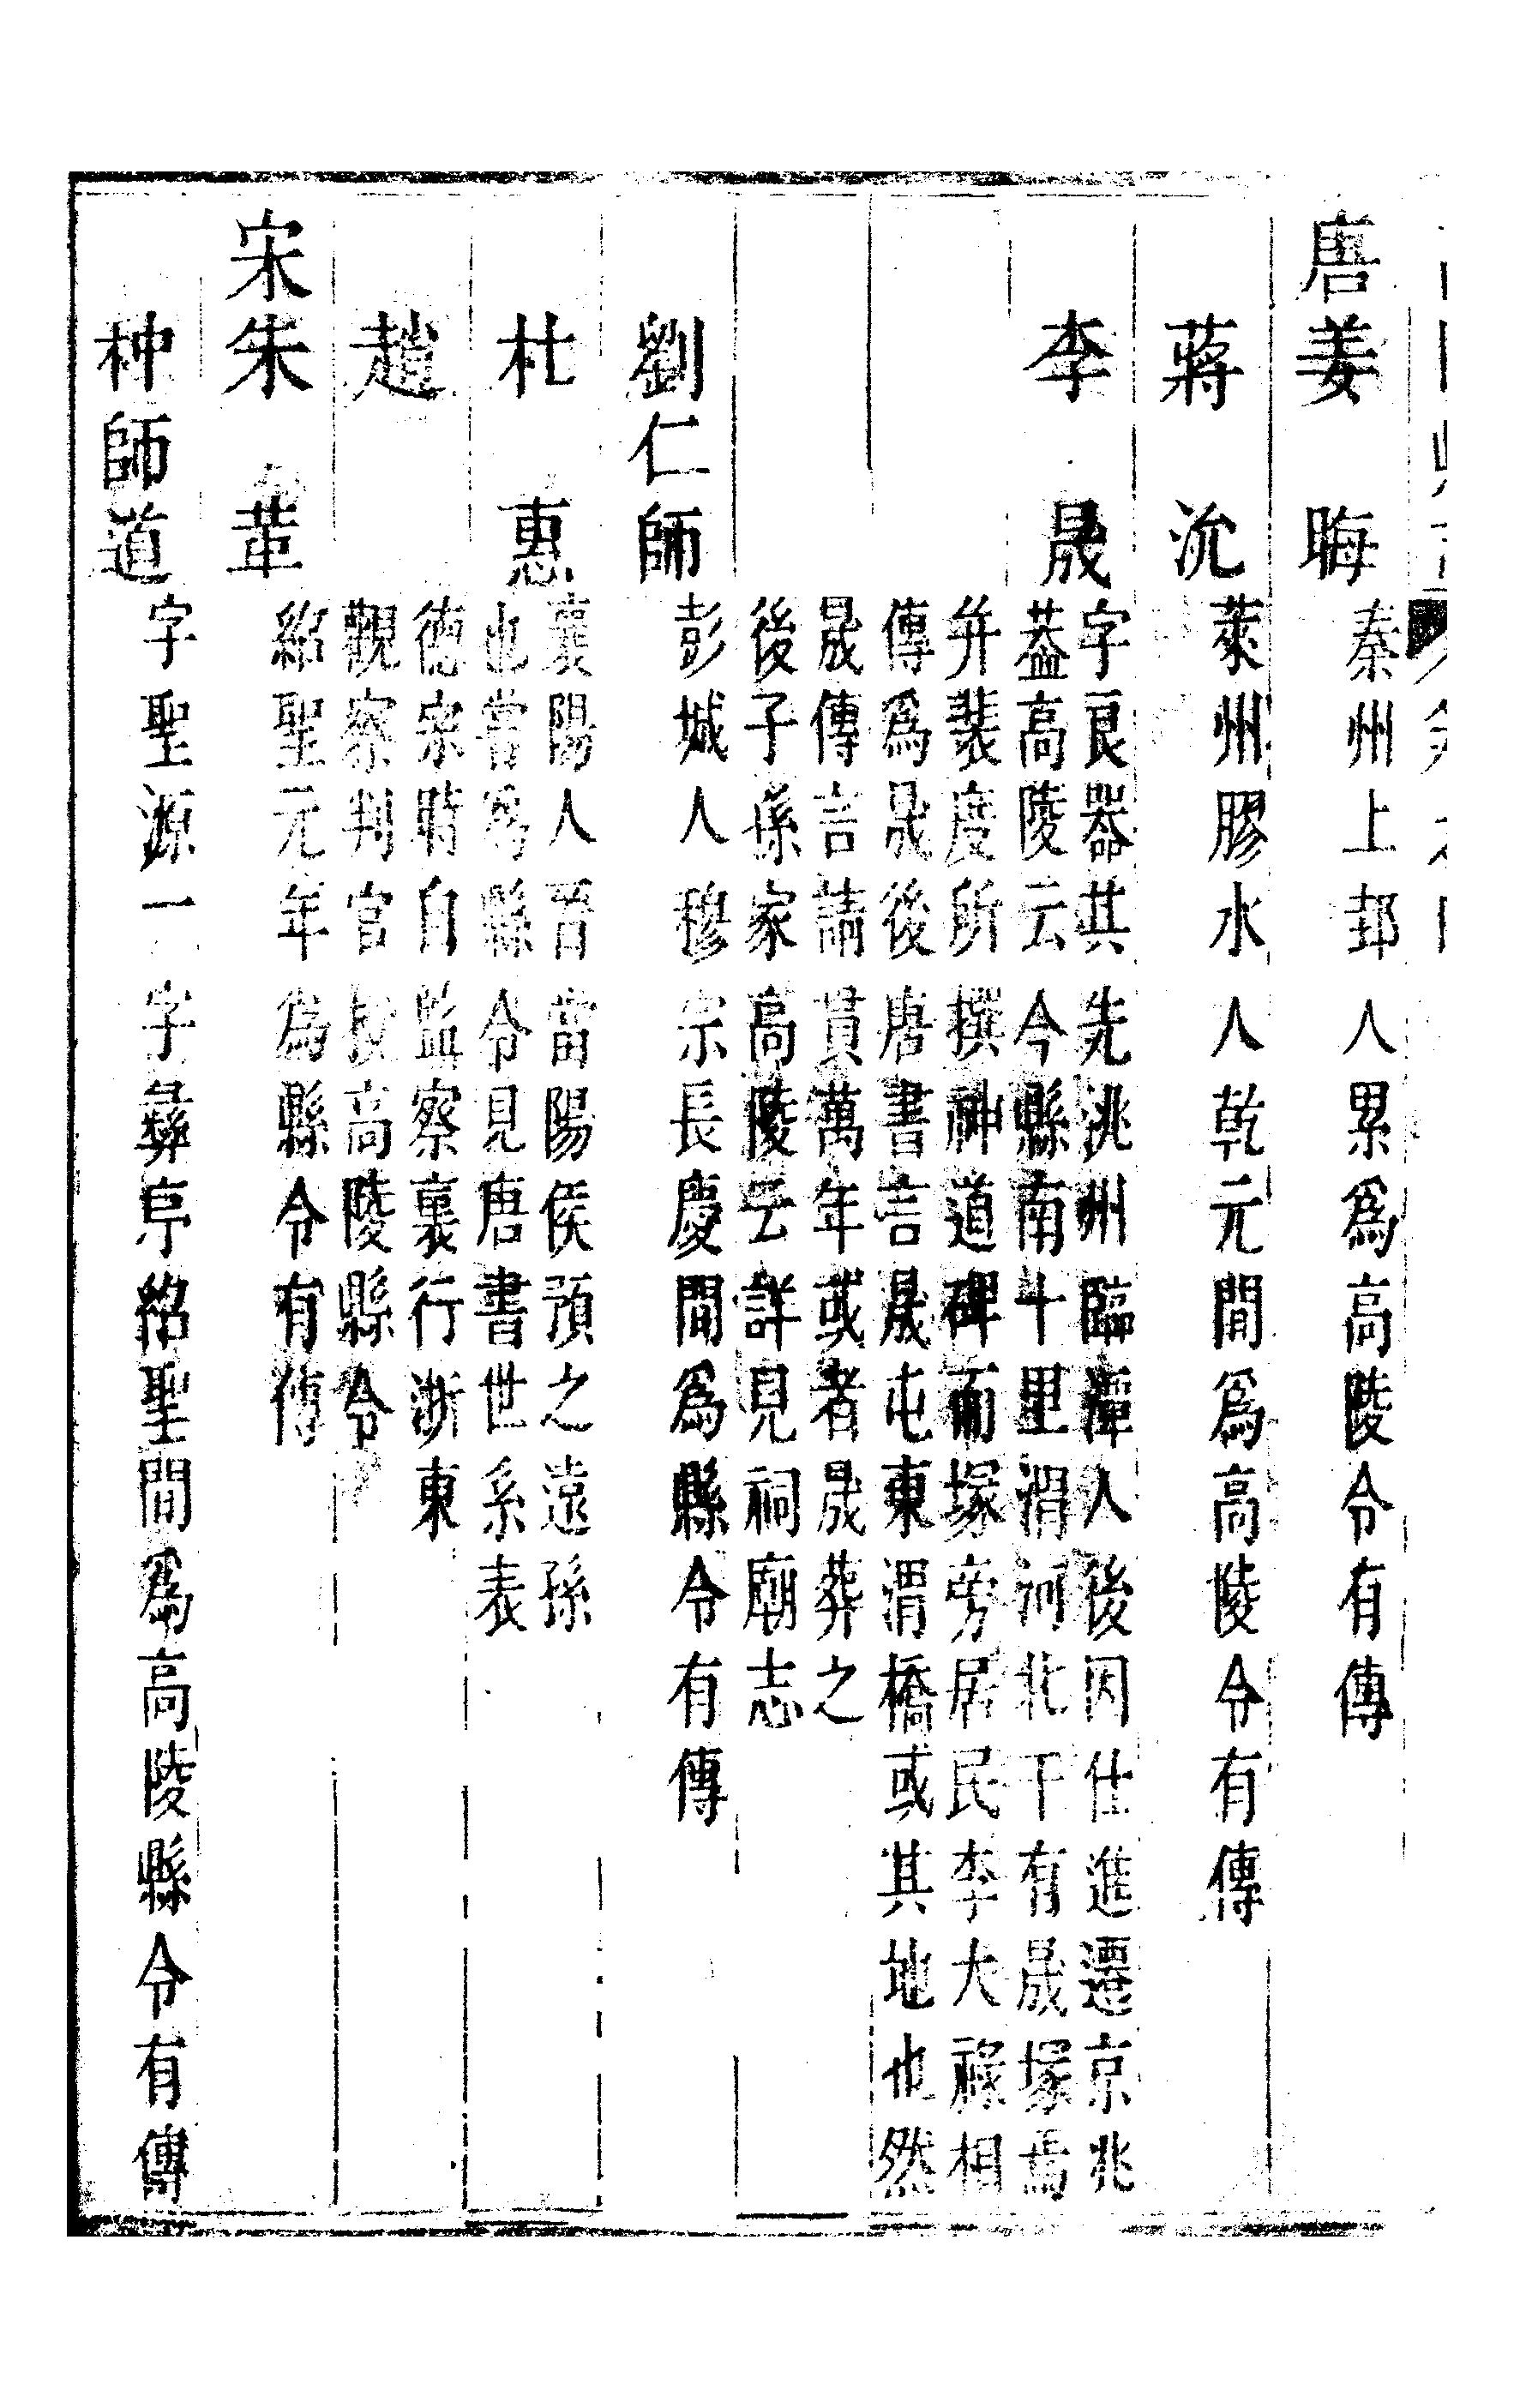 唐姜　晦秦州上邽人累爲高陵令有傳
蔣　沇萊州膠水人乾元間爲高陵令有傳
李　晟字良器其先洮州臨潭人後因仕進遷京兆
葢高陵云今縣南十里渭河北干有晟塚焉
并裴度所撰神道碑而塚旁居民李大祿相
傳爲晟後唐書言晟屯東渭橋或其地也然
晟傳言請貫萬年或者晟葬之
後子孫家高陵云詳見祠廟志
劉仁師彭城人穆宗長慶間爲縣令有傳
杜　惠襄陽人晉當陽侯預之遠孫
也嘗爲縣令見唐書世系表
趙德宗時自監察裏行浙東
觀察判官授高陵縣令
宋朱　革紹聖元年爲縣令有傳
种師道字聖源一字彝序紹聖間爲高陵縣令有傳